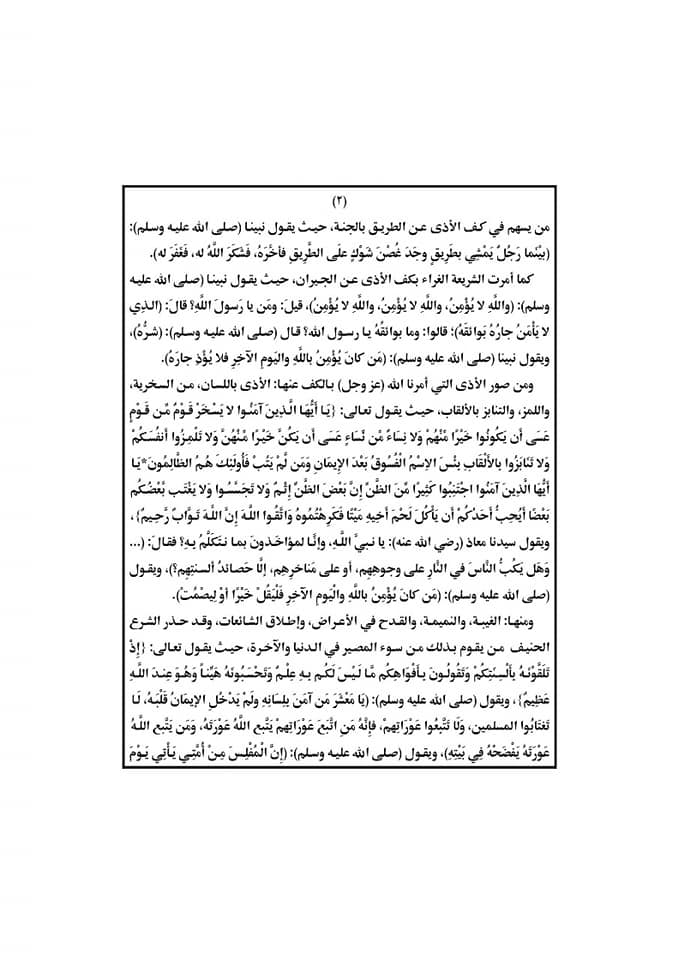 (٢)
من يسهم في كف الأذى عن الطريق بالجنة، حيث يقول نبينا (صلى الله عليه وسلم):
(بيْنَما رَجُلٌ يَمْشِي بطَرِيقٍ وجَدَ غُصْنَ شَوْكٍ علَى الطَّرِيقِ فأخَّرَهُ، فَشَكَرَ اللَّهُ له، فَغَفَرَ له).
كما أمرت الشريعة الغراء بكف الأذى عن الجيران، حيث يقول نبينا (صلى الله عليه
وسلم): (واللَّهِ لا يُؤْمِنُ، واللَّهِ لا يُؤْمِنُ، واللَّهِ لا يُؤْمِنُ)، قيلَ: ومَن يا رَسولَ اللَّهِ؟ قالَ: (الذِي
لا يَأْمَنُ جارُهُ بَوائقَهُ)؛ قالوا: وما بوائقُهُ يا رسول الله؟ قال (صلى الله عليه وسلم): (شرُّهُ)،
ويقول نبينا (صلى الله عليه وسلم): (مَن كانَ يُؤْمِنُ باللَّهِ واليَومِ الآخِرِ فلا يُؤْذِ جارَهُ).
ومن صور الأذى التي أمرنا الله (عز وجل) بالكف عنها: الأذى باللسان، من السخرية،
واللمز، والتنابز بالألقاب، حيث يقول تعالى: {يَا أَيُّهَا الَّذِينَ آمَنُوا لا يَسْخَرْ قَوْمٌ مِّن قَوْمٍ
عَسَى أَن يَكُونُوا خَيْرًا مِّنْهُمْ وَلا نِسَاءٌ مِّن نِّسَاءٍ عَسَى أَن يَكُنَّ خَيْرًا مِّنْهُنَّ وَلا تَلْمِزُوا أَنفُسَكُمْ
وَلا تَنَابَزُوا بِالأَلْقَابِ بِئْسَ الاِسْمُ الْفُسُوقُ بَعْدَ الإِيمَانِ وَمَن لَّمْ يَتُبْ فَأُولَئِكَ هُمُ الظَّالِمُونَ*يَا
أَيُّهَا الَّذِينَ آمَنُوا اجْتَنِبُوا كَثِيرًا مِّنَ الظَّنِّ إِنَّ بَعْضَ الظَّنِّ إِثْمٌ وَلا تَجَسَّسُوا وَلا يَغْتَب بَّعْضُكُم
بَعْضًا أَيُحِبُّ أَحَدُكُمْ أَن يَأْكُلَ لَحْمَ أَخِيهِ مَيْتًا فَكَرِهْتُمُوهُ وَاتَّقُوا اللَّهَ إِنَّ اللَّهَ تَوَّابٌ رَّحِيمٌ}،
ويقول سيدنا معاذ (رضي الله عنه): يا نبيَّ اللَّهِ، وإنَّا لمؤاخَذونَ بما نتَكَلَّمُ بِهِ؟ فقالَ: (...
وَهَل يَكُبُّ النَّاسَ في النَّارِ على وجوهِهِم، أو على مَناخرِهِم، إلَّا حَصائدُ ألسنتِهِم؟)، ويقول
(صلى الله عليه وسلم): (مَن كانَ يُؤْمِنُ باللَّهِ والْيَومِ الآخِرِ فَلْيَقُلْ خَيْرًا أوْ لِيصْمُتْ).
ومنها: الغيبة، والنميمة، والقدح في الأعراض، وإطلاق الشائعات، وقد حذر الشرع
الحنيف من يقوم بذلك من سوء المصير في الدنيا والآخرة، حيث يقول تعالى: {إِذْ
تَلَقَّوْنَهُ بِأَلْسِنَتِكُمْ وَتَقُولُونَ بِأَفْوَاهِكُم مَّا لَيْسَ لَكُم بِهِ عِلْمٌ وَتَحْسَبُونَهُ هَيِّناً وَهُوَ عِندَ اللَّهِ
عَظِيمٌ}، ويقول (صلى الله عليه وسلم): (يَا مَعْشَرَ مَن آمَنَ بِلِسَانِهِ ولَمْ يَدْخُلِ الإيمَانُ قَلْبَهُ، لَا
تَغتَابُوا المسلمين، وَلَا تَتَّبِعُوا عَوْرَاتِهِمْ، فإنَّهُ مَنِ اتَّبَعَ عَوْرَاتِهِمْ يَتَّبِعِ اللَّهُ عَوْرَتَهُ، وَمَن يَتَّبِعِ اللَّهُ
عَوْرَتَهُ يَفْضَحْهُ فِي بَيْتِهِ)، ويقول (صلى الله عليه وسلم): (إنَّ الْمُفْلِسَ مِنْ أُمَّتي يَأْتي يَوْمَ